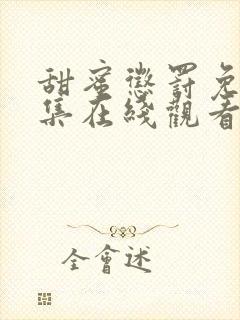 甜蜜懲罰免
集在綫觀看
全會述